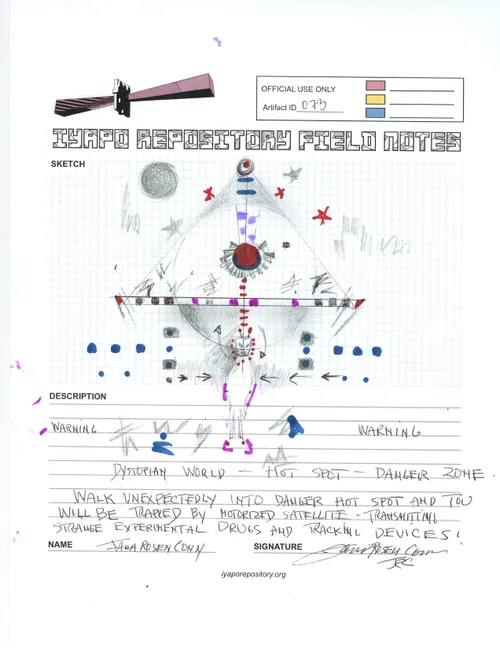 OFFICIAL USE ONLY
Artifact ID 073
IYAPO REPOSITORY FIELD NOTES
SKETCH
DESCRIPTION
WARNING WARNING
DYSTOPIAN WORLD - HOT SPOT - DANGER ZONE.
WALK UNEXPECTEDLY INTO DANGER HOT SPOT AND YOU
WILL BE TRAPED BY MOTORIZED SATELLITE - TRANSMITTING
STRANGE EXPERIMENTAL DRUGS AND TRACKING DEVICES!
NAME JANA ROSEN CONN SIGNATURE Jana Rosen Conn
JRC
iyaporepository.org